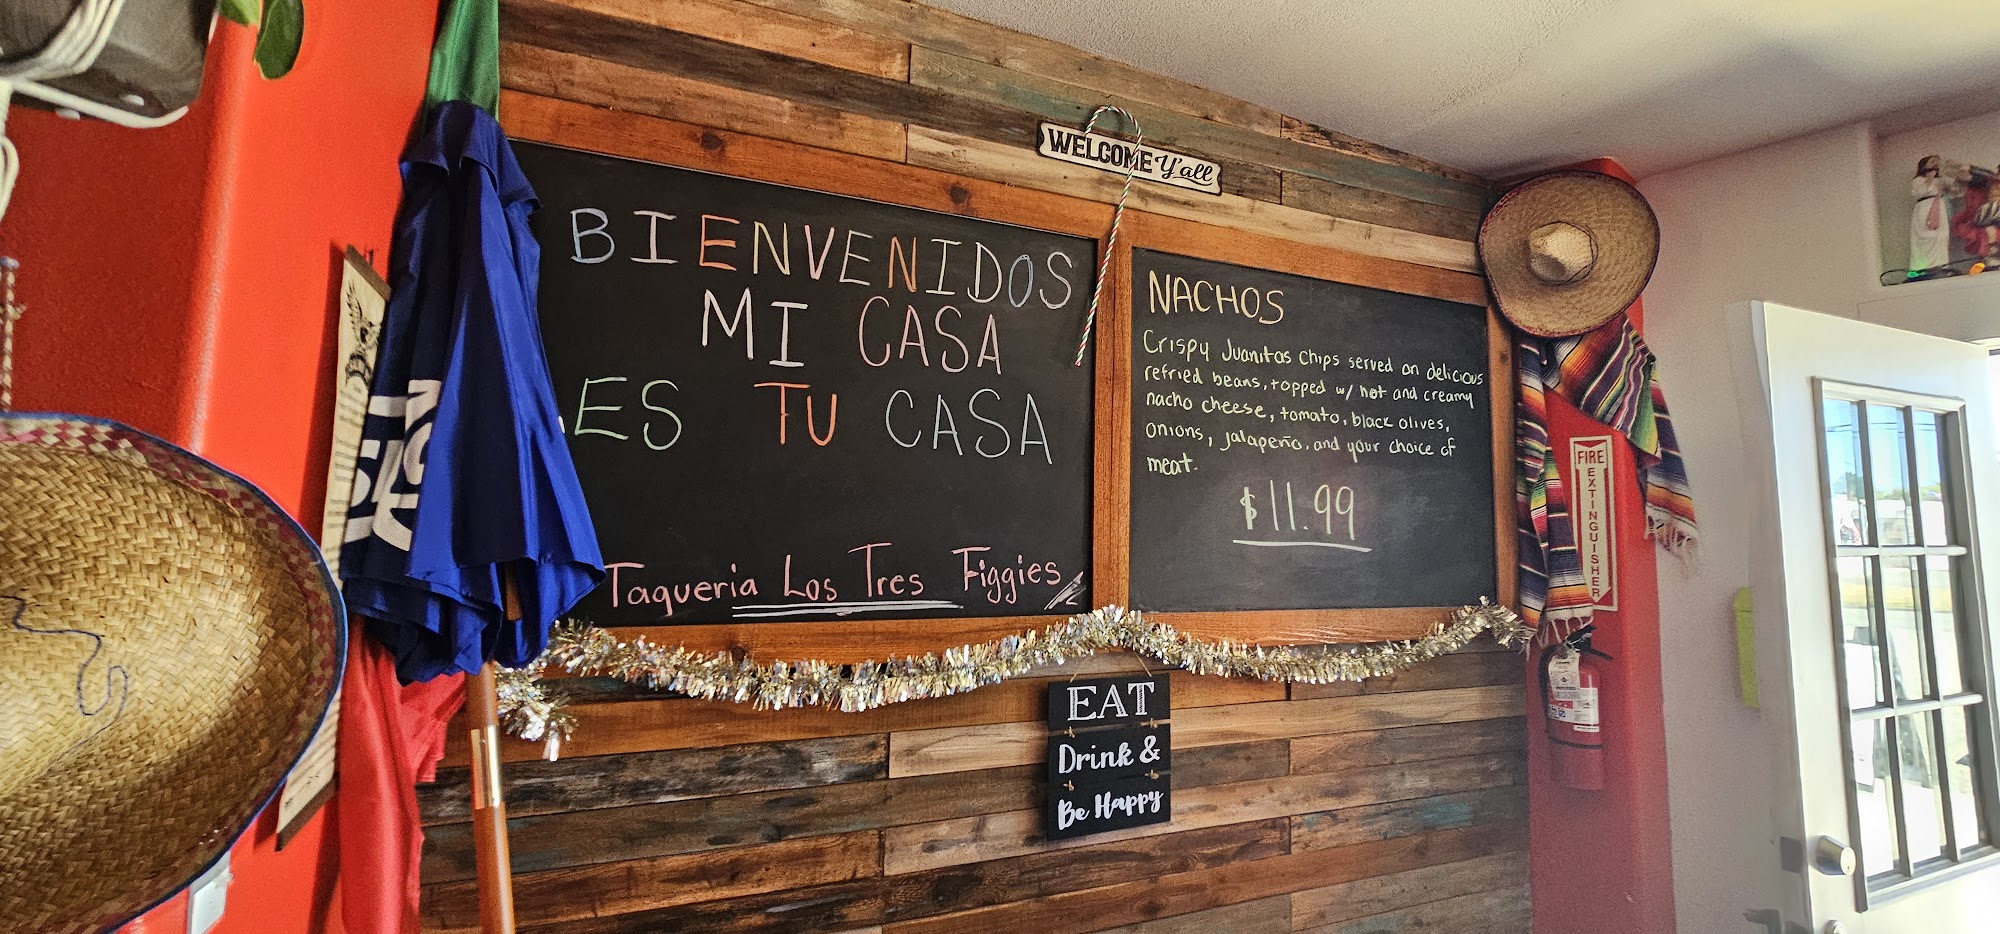 WELCOME Y'all
BIENVENIDOS
MI CASA
ES TU CASA
Taqueria Los Tres Figgies
NACHOS
Crispy Juanitas chips served on delicious
refried beans, topped w/ hot and creamy
nacho cheese, tomato, black olives,
onions, jalapeño, and your choice of
meat.
$11.99
FIRE
EXTINGUISHER
EAT
Drink &
Be Happy